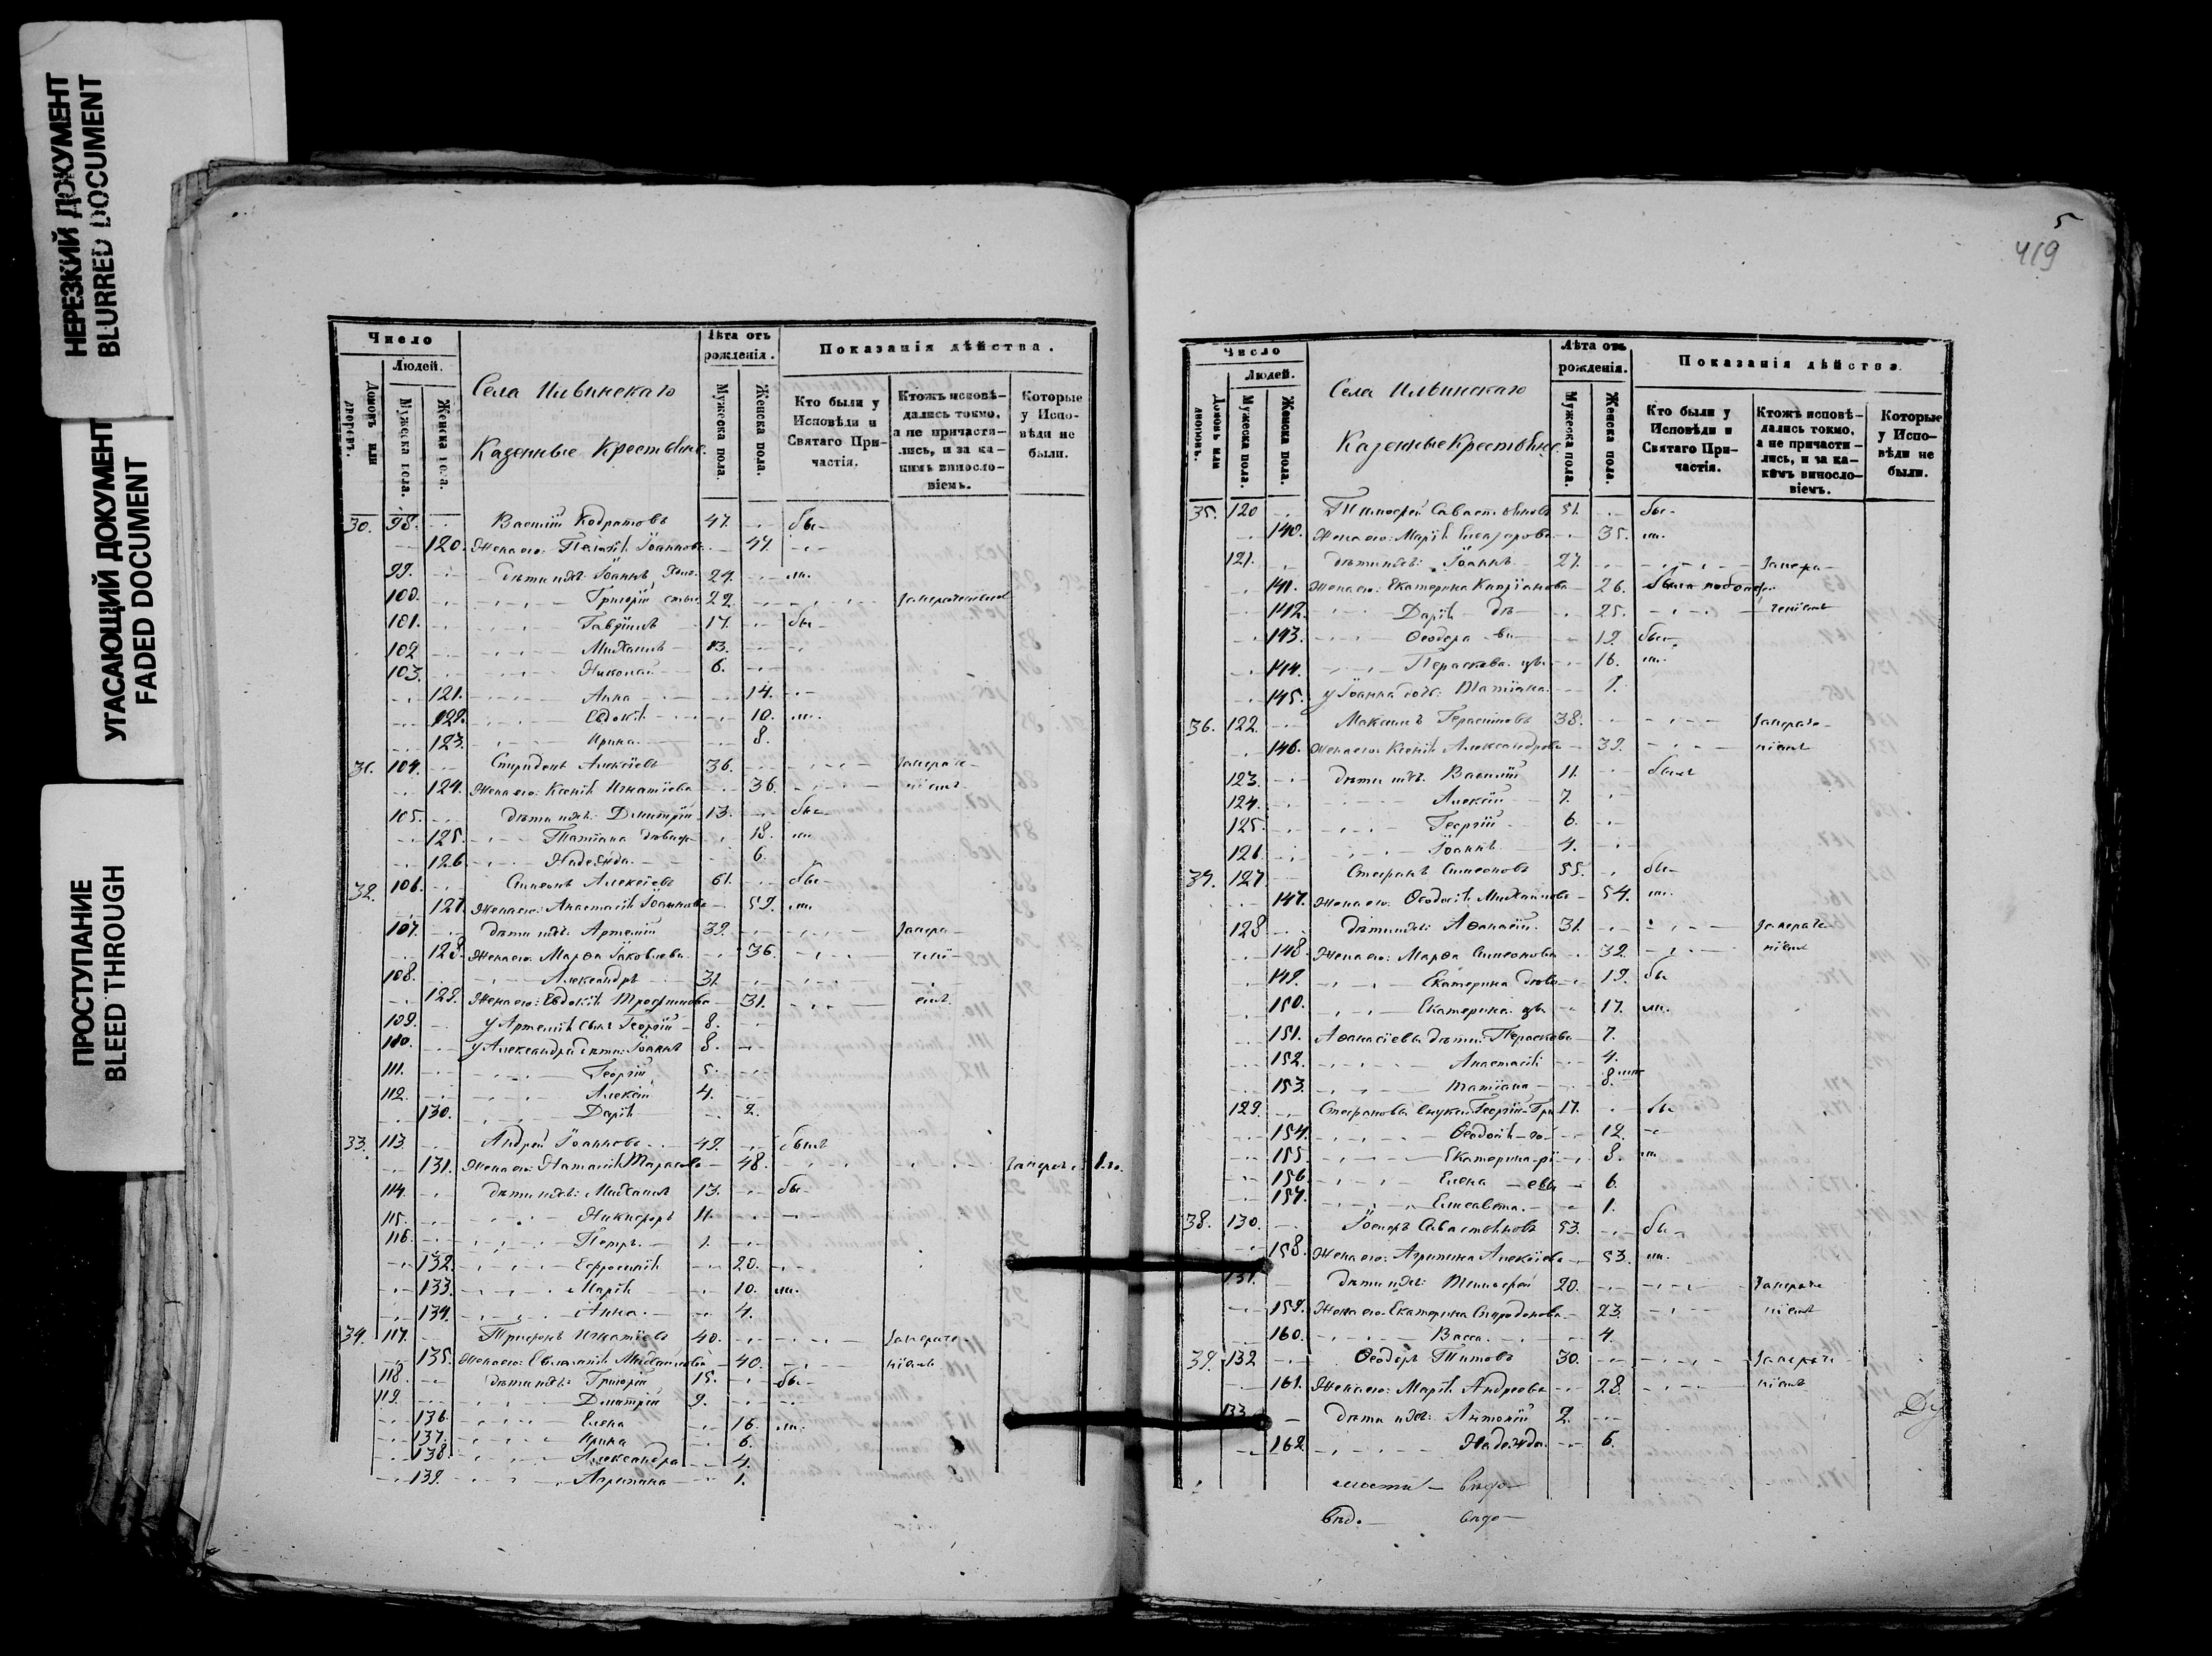 НЕРЕЗКИЙ ДОКУМЕНТ
BLURRED DOCUMENT
УГАСАЮЩИЙ ДОКУМЕНТ
FADED DOCUMENT
ПРОСТУПАНИЕ
BLEED THROUGH
Число
Людей.
Домовъ или дворовъ.
Мужеска пола.
Женска пола.
Села Ильинскаго
Казенные Крестьяне.
Лѣта отъ рожденія.
Мужеска пола.
Женска пола.
Показанія дѣйства.
Кто были у Исповѣди и Святаго Причастія.
Ктожъ исповѣдались токмо, а не причастились, и за какимъ винословіемъ.
Которые у Исповѣди не были.
30. 98. Василій Кодратовъ 47. бы-
120. Жена его: Пелагія Іоаннова 47.
99. дѣти ихъ: Іоаннъ 24. ли.
100. Григорій 22.
101. Гавріилъ 17. бы-
102 Михаилъ 13.
103. Николай 6.
121. Анна 14.
122. Евдокія 10. ли.
123. Ирина 8.
31. 104. Спиридонъ Алексіевъ 36. за нераче-
124. Жена его: Ксенія Игнатіева 36. ніемъ
105. дѣти ихъ: Димитрій 13. бы-
125. Татіана 18. ли
126. Надежда 6.
32. 106. Симеонъ Алексіевъ 61. бы-
127. Жена его: Анастасія Іоаннова 59. ли.
107. дѣти ихъ: Артемій 39. за нера-
128. Жена его: Марѳа Іаковлева 36. чені-
108. Александръ 31.
129. Жена его: Евдокія Трофимова 31. емъ.
109. у Артемія сынъ Георгій 8.
110. у Александра дѣти: Іоаннъ 8.
111. Георгій 5.
112. Алексій 4.
130. Дарія 2.
33. 113. Андрей Іоанновъ 49. былъ
131. Жена его: Наталія Тарасова 48.
114. дѣти ихъ: Михаилъ 13. бы-
115. Никифоръ 11.
116. Петръ 1.
132. Евфросинія 20.
133. Марія 10. ли.
134. Анна 4.
34. 117. Трифонъ Игнатіевъ 40. за нераче-
135. Жена его: Евлампія Михайлова 40. ніемъ
118. дѣти ихъ: Григорій 15. бы-
119. Димитрій 9.
136. Елена 16. ли.
137. Ирина 6.
138. Александра 4.
139. Агрипина 1.
5
419
Число
Людей.
Домовъ или дворовъ.
Мужеска пола.
Женска пола.
Села Ильинскаго
Казенные Крестьяне.
Лѣта отъ рожденія.
Мужеска пола.
Женска пола.
Показанія дѣйства.
Кто были у Исповѣди и Святаго Причастія.
Ктожъ исповѣдались токмо, а не причастились, и за какимъ винословіемъ.
Которые у Исповѣди не были.
35. 120 Тимофей Савастьяновъ 51. бы-
140. Жена его: Марія 35. ли.
121. дѣти ихъ: Іоаннъ 27. за нера-
141. Жена его: Екатерина Капріанова 26.
142. Дарія 25. ченіемъ
143. Ѳеодора 19. бы-
144. Параскева 16. ли.
145. у Іоанна дочь: Татіана 1.
36. 122. Максимъ Герасимовъ 38. за нераче-
146. Жена его: Ксенія Александрова 39. ніемъ
123. дѣти ихъ: Василій 11. былъ
124. Алексій 7.
125. Георгій 6.
126. Іоаннъ 4.
37. 127. Стефанъ Симеоновъ 55. бы-
147. Жена его: Ѳеодосія Михайлова 54. ли.
128 дѣти ихъ: Аѳанасій 31. за нераче-
148. Жена его: Марѳа Симеонова 32. ніемъ
149. Екатерина 19. бы
150. Екатерина 17. ли.
151. Аѳанасіевы дѣти: Параскева 7.
152. Анастасія 4.
153. Татіана 8
129. Стефановы внуки: Георгій 17. бы
154. Ѳеодосія 12.
155. Екатерина 8. ли
156. Елена 6.
157. Елисавета 1.
38. 130. Іосифъ Савастьяновъ 53. бы-
158. Жена его: Агрипина Алексіева 53. ли.
131. дѣти ихъ: Тимофей 20. за нераче-
159. Жена его: Екатерина Спиридонова 23. ніемъ
160. Васса 4.
39. 132 Ѳеодоръ Титовъ 30. за нераче-
161. Жена его: Марія Андреева 28. ніемъ
133. дѣти ихъ: Антоній 2.
162. Надежда 6.